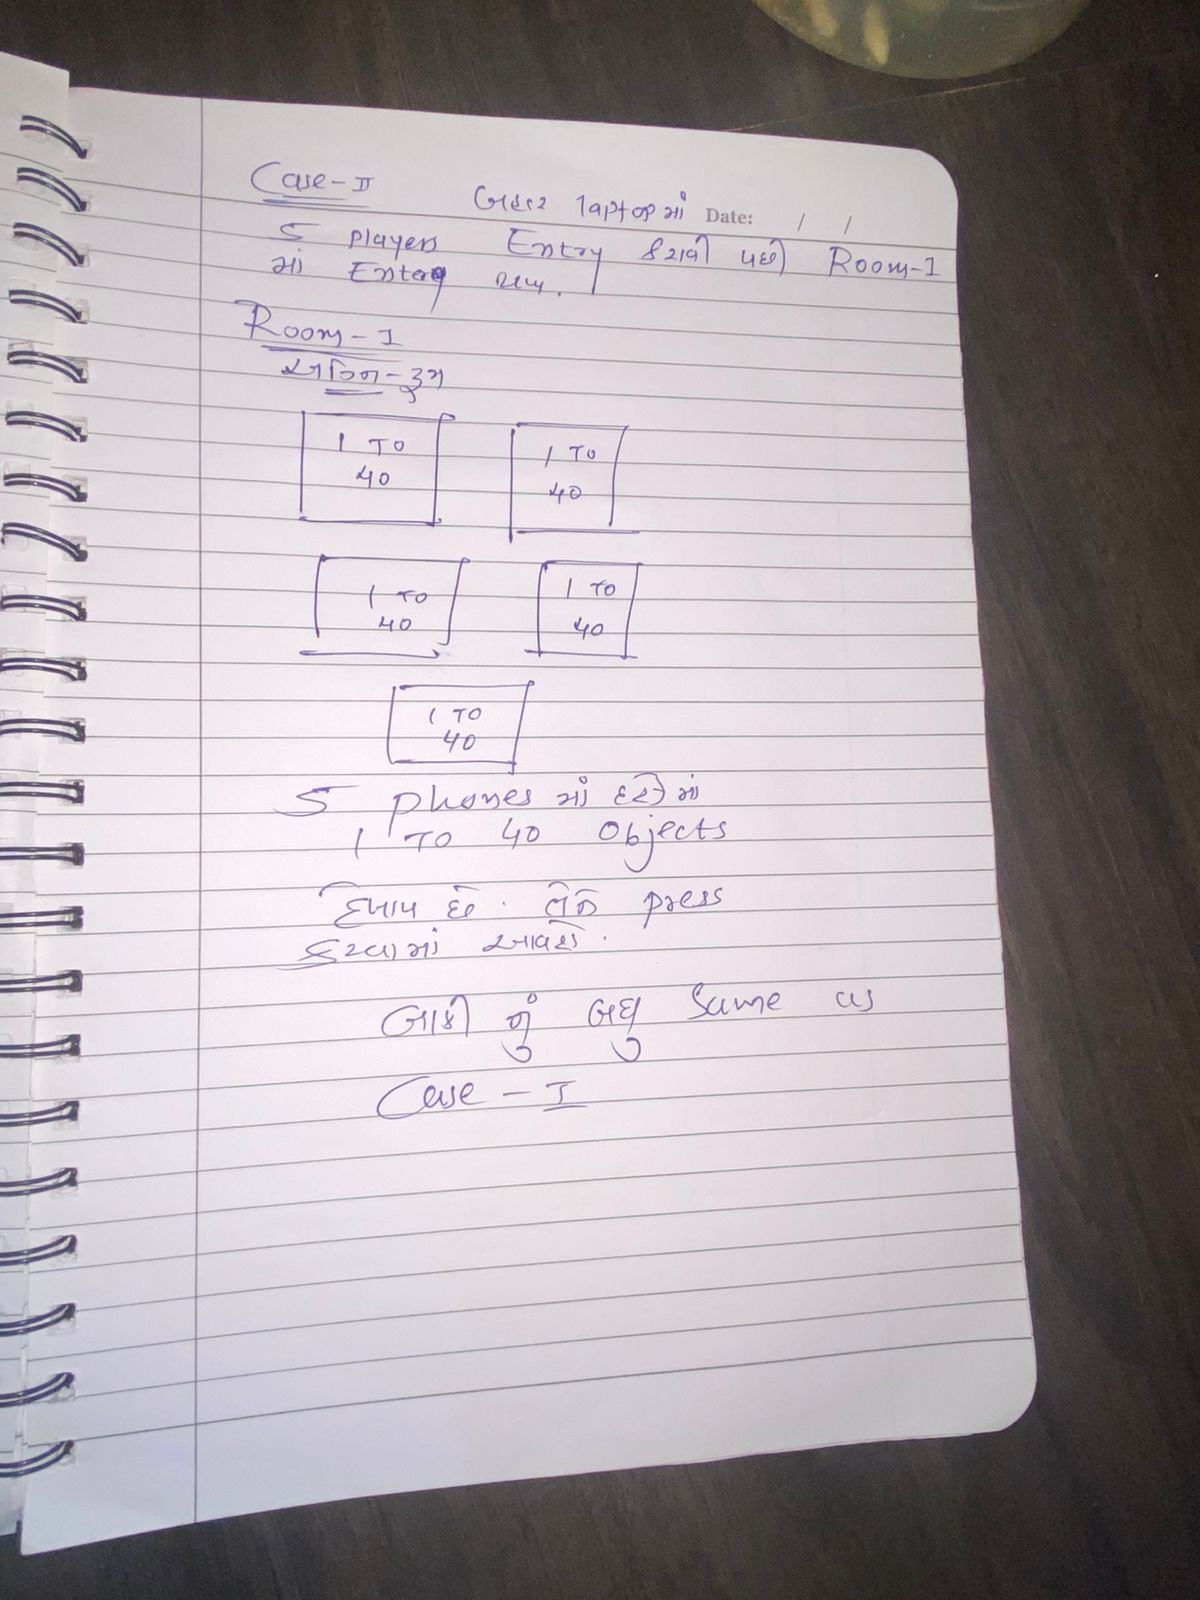 Case-II
બહાર laptop માં Date: / /
5 players Entry કરાવી પછી Room-I
માં Enter થાય.
Room-I
1 TO
40
1 TO
40
1 TO
40
1 TO
40
1 TO
40
5 phones માં દરેકમાં
1 TO 40 objects
દેખાય છે. તેને press
કરવામાં આવશે.
બાકી નું બધુ Same as
Case - I